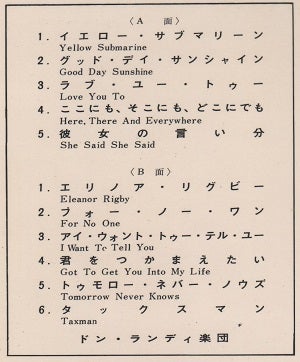 〈A 面〉
1. イエロー・サブマリーン
Yellow Submarine
2. グッド・デイ・サンシャイン
Good Day Sunshine
3. ラブ・ユー・トゥー
Love You To
4. ここにも、そこにも、どこにでも
Here, There And Everywhere
5. 彼女の言い分
She Said She Said
〈B 面〉
1. エリノア・リグビー
Eleanor Rigby
2. フォー・ノー・ワン
For No One
3. アイ・ウォント・トゥー・テル・ユー
I Want To Tell You
4. 君をつかまえたい
Got To Get You Into My Life
5. トゥモロー・ネバー・ノウズ
Tomorrow Never Knows
6. タックスマン
Taxman
ドン・ランディ楽団